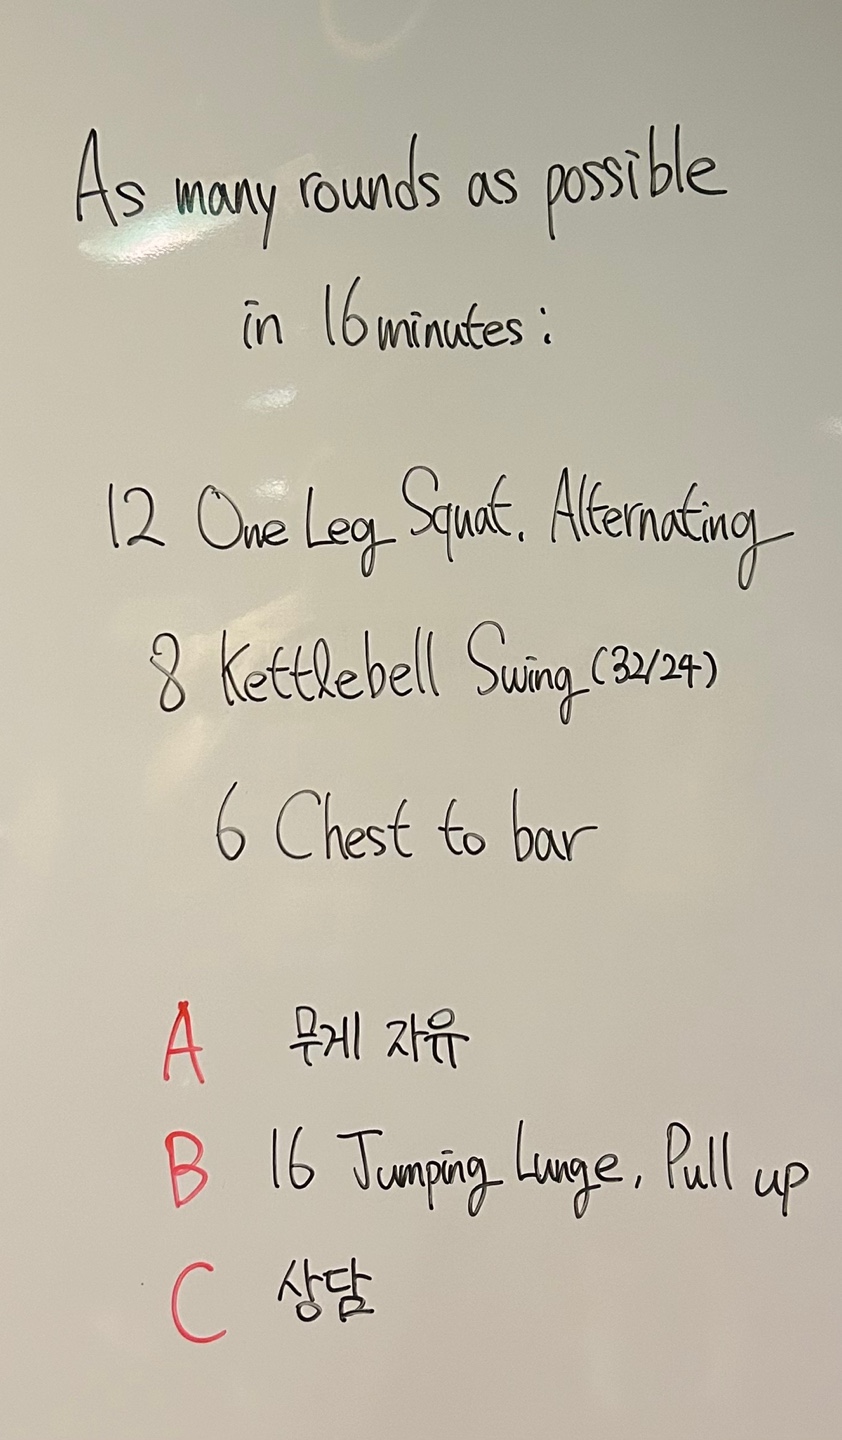 As many rounds as possible
in 16 minutes :
12 One Leg Squat. Alternating
8 Kettlebell Swing (32/24)
6 Chest to bar
A 무게 자유
B 16 Jumping Lunge, Pull up
C 상담